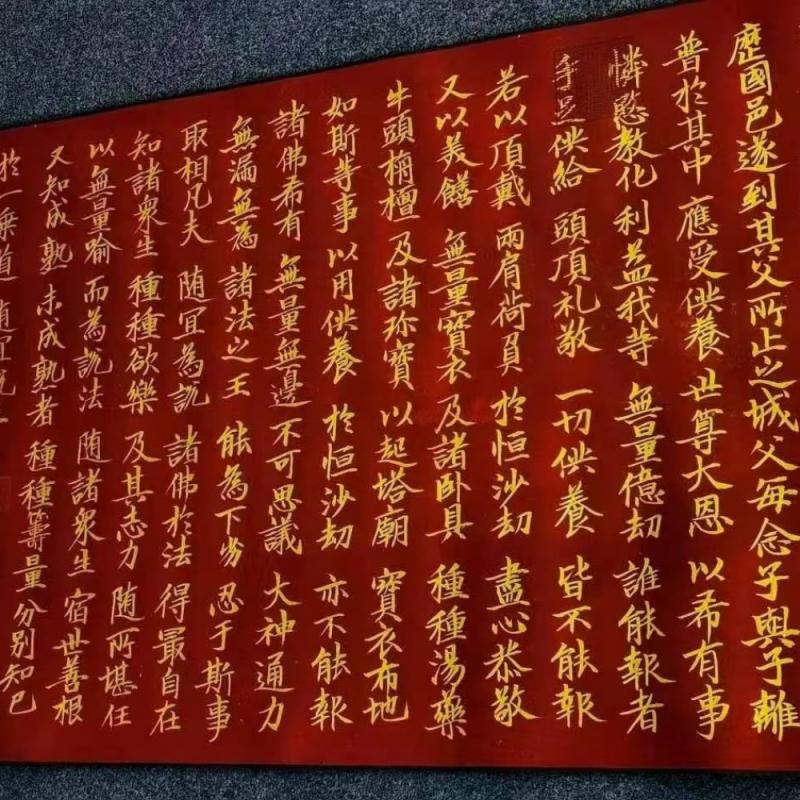 歷國邑遂到其父所止之城父每念子與子離
普於其中 應受供養 世尊大恩 以希有事
憐愍教化 利益我等 無量億劫 誰能報者
手足供給 頭頂礼敬 一切供養 皆不能報
若以頂戴 兩肩荷負 於恒沙劫 盡心恭敬
又以美饍 無量寶衣 及諸卧具 種種湯藥
牛頭栴檀 及諸珎寶 以起塔廟 寶衣布地
如斯等事 以用供養 於恒沙劫 亦不能報
諸佛希有 無量無邊 不可思議 大神通力
無漏無為 諸法之王 能為下劣 忍于斯事
取相凡夫 随宜為說 諸佛於法 得最自在
知諸衆生 種種欲樂 及其志力 随所堪任
以無量喻 而為說法 随諸衆生 宿世善根
又知成熟 未成熟者 種種籌量 分別知已
於一乘道 随宜說